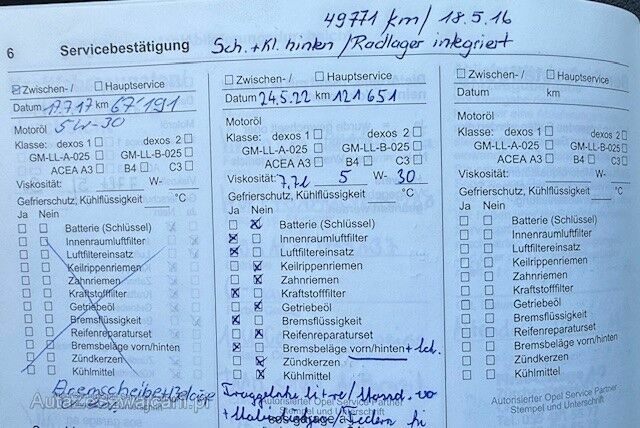 49771 km / 18.5.16
6 Servicebestätigung Sch. + Kl. hinten / Radlager integriert
Zwischen- / Hauptservice
Datum 17.7.17 km 67'191
Motoröl 5W-30
Klasse: dexos 1 dexos 2
GM-LL-A-025 GM-LL-B-025
ACEA A3 B4 C3
Viskosität: W-
Gefrierschutz, Kühlflüssigkeit °C
Ja Nein
Batterie (Schlüssel)
Innenraumluftfilter
Luftfiltereinsatz
Keilrippenriemen
Zahnriemen
Kraftstofffilter
Getriebeöl
Bremsflüssigkeit
Reifenreparaturset
Bremsbeläge vorn/hinten
Zündkerzen
Kühlmittel
AutazeSzwajcarii.pl
Zwischen- / Hauptservice
Datum 24.5.22 km 121 651
Motoröl
Klasse: dexos 1 dexos 2
GM-LL-A-025 GM-LL-B-025
ACEA A3 B4 C3
Viskosität: 7,7l 5 W- 30
Gefrierschutz, Kühlflüssigkeit °C
Ja Nein
Batterie (Schlüssel)
Innenraumluftfilter
Luftfiltereinsatz
Keilrippenriemen
Zahnriemen
Kraftstofffilter
Getriebeöl
Bremsflüssigkeit
Reifenreparaturset
Bremsbeläge vorn/hinten + Sch.
Zündkerzen
Kühlmittel
Autorisierter Opel Service Partner
Stempel und Unterschrift
Zwischen- / Hauptservice
Datum km
Motoröl
Klasse: dexos 1 dexos 2
GM-LL-A-025 GM-LL-B-025
ACEA A3 B4 C3
Viskosität: W-
Gefrierschutz, Kühlflüssigkeit °C
Ja Nein
Batterie (Schlüssel)
Innenraumluftfilter
Luftfiltereinsatz
Keilrippenriemen
Zahnriemen
Kraftstofffilter
Getriebeöl
Bremsflüssigkeit
Reifenreparaturset
Bremsbeläge vorn/hinten
Zündkerzen
Kühlmittel
Autorisierter Opel Service Partner
Stempel und Unterschrift